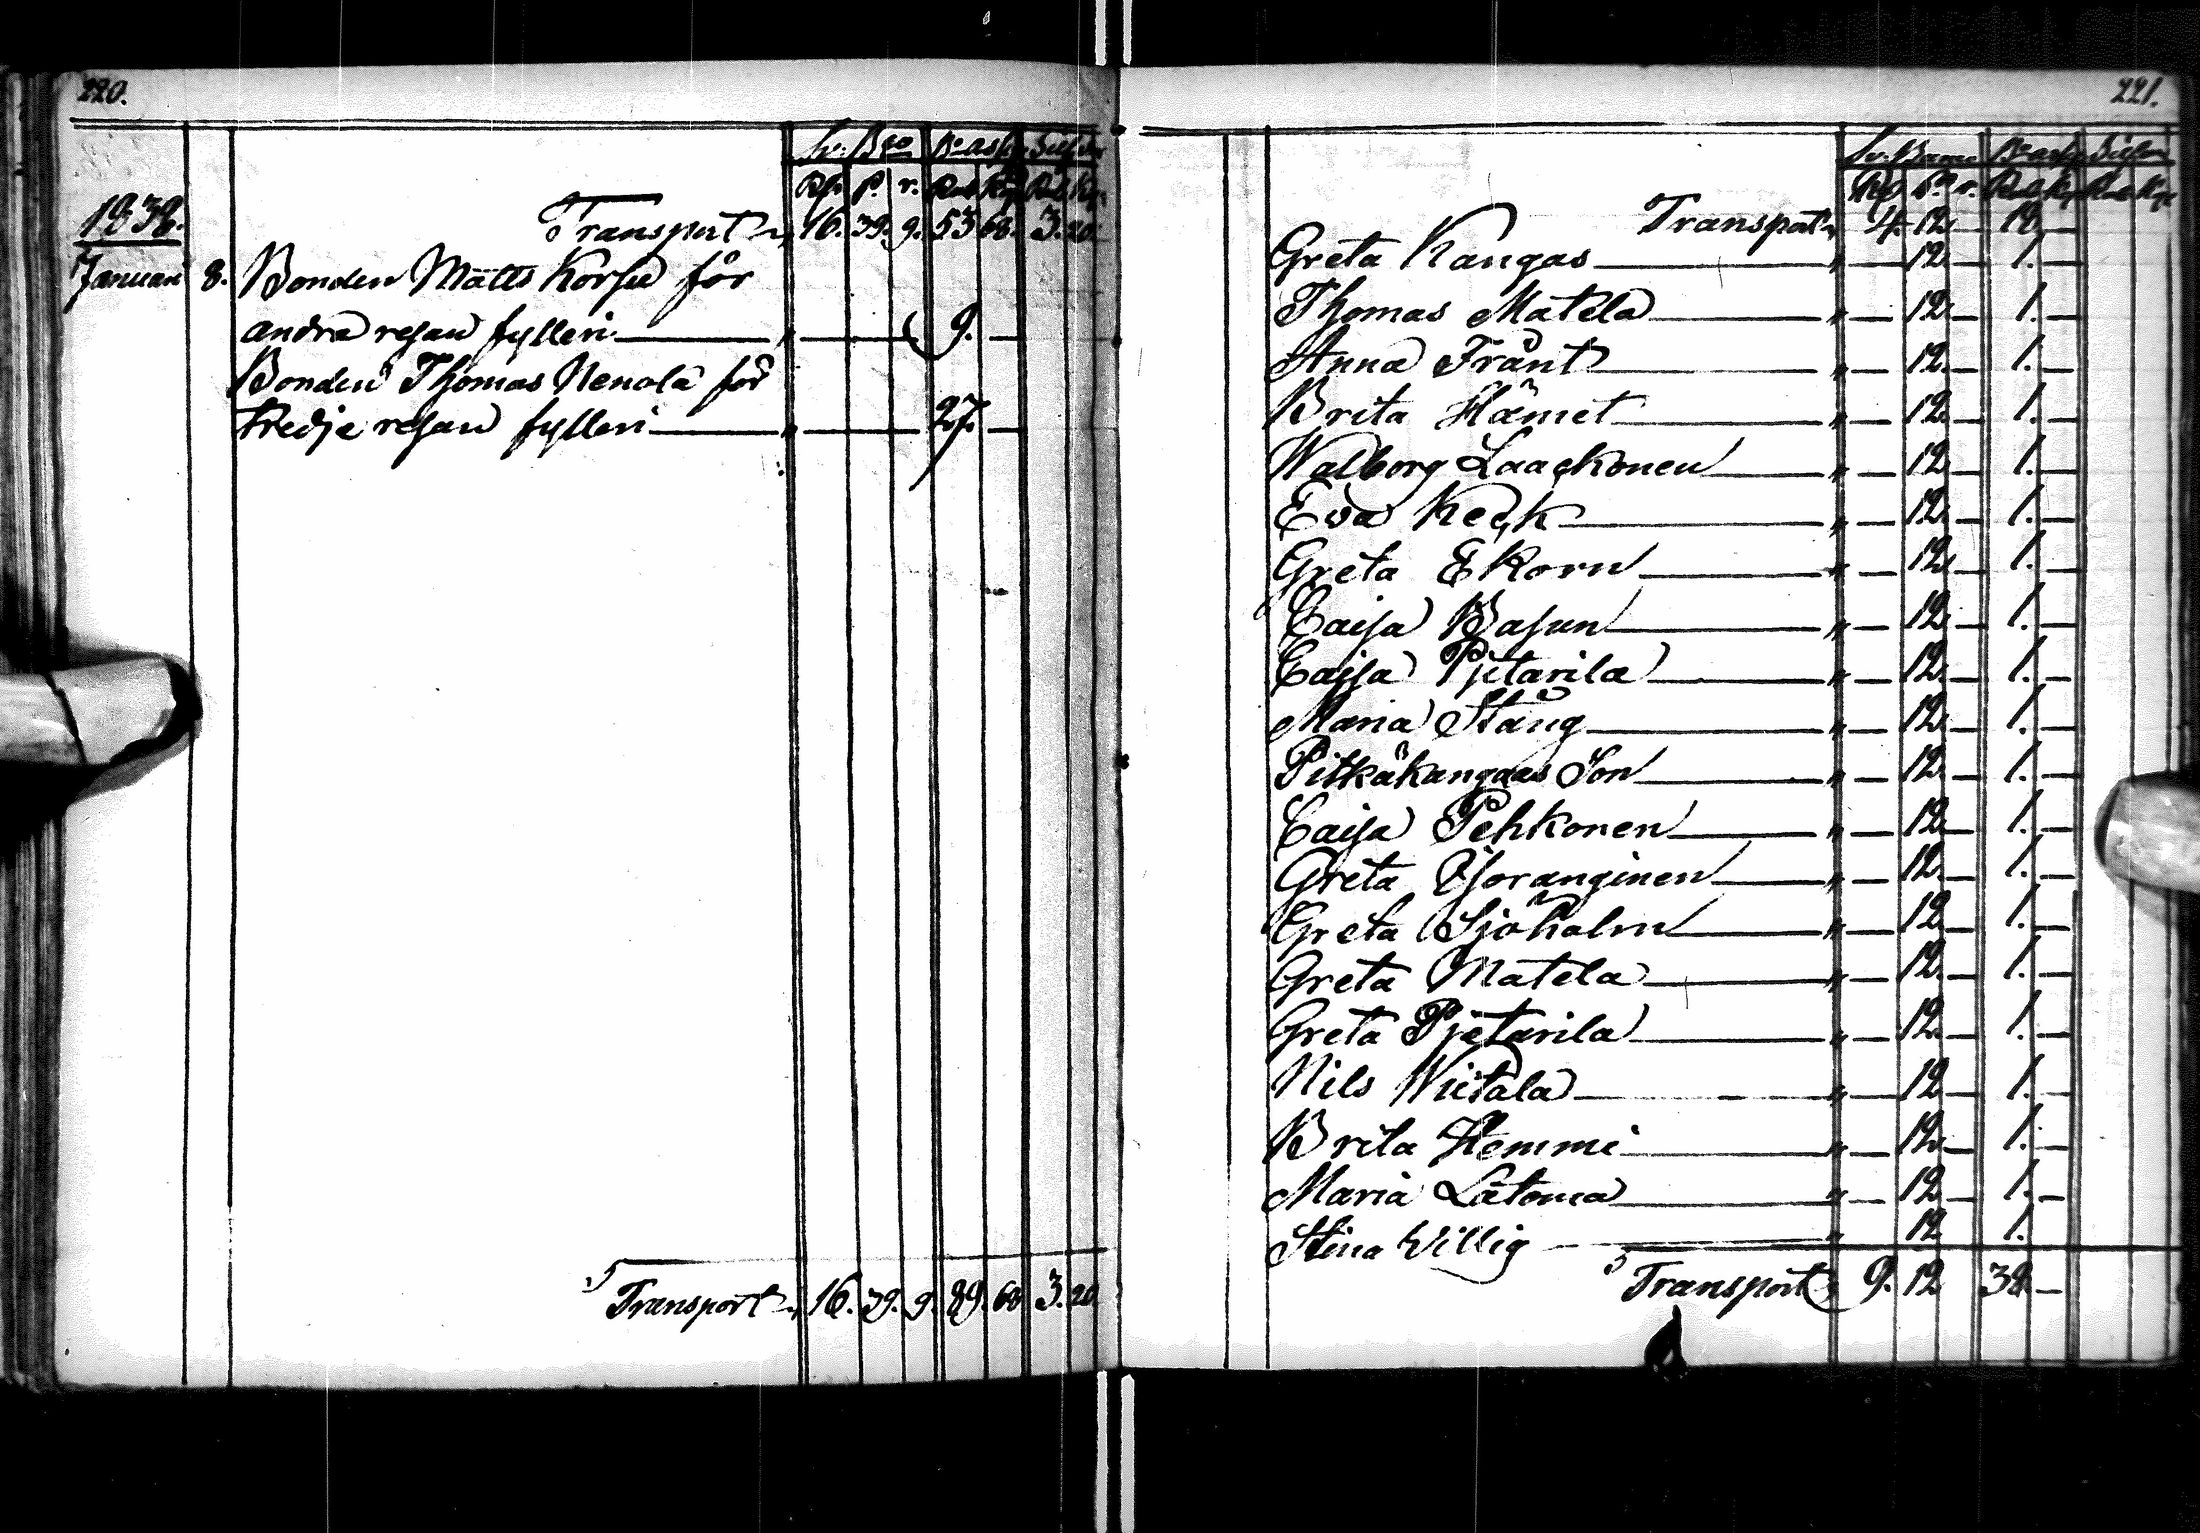 220.
Sv: Bco Bco ass. Silfver
Rd P. r. Rub Kop Rub Kop
1838.
Transport 16. 39. 9. 53 68. 3. 20
Januari 8. Bonden Matts Korsu för
andra resan fylleri 9. —
Bonden Thomas Nenola för
tredje resan fylleri 27. —
Transport 16. 39. 9. 89. 68 3. 20
221.
Sv: Banco Bco ass. Silfver
Rd r. Rub Kop Rub Kop
Transport 4. 12 18
Greta Kangas " — 12 — 1. —
Thomas Matela " — 12 — 1. —
Anna Frant " — 12. — 1. —
Brita Hämet " — 12 — 1. —
Walborg Laackonen " — 12 — 1. —
Eva Keck " — 12 — 1. —
Greta Ekorn " — 12 — 1. —
Caisa Basun " — 12. — 1. —
Caisa Pjetarila " — 12. — 1. —
Maria Stång " — 12. — 1. —
Pitkäkangas Son " — 12 — 1. —
Caisa Pehkonen " — 12 — 1. —
Greta Joranginen " — 12. — 1. —
Greta Sjöholm " — 12 — 1. —
Greta Matela " — 12. — 1. —
Greta Pjetarila " — 12. — 1. —
Nils Wiitala " — 12 — 1. —
Brita Hemmi " — 12. — 1. —
Maria Latoma " — 12 — 1. —
Stina Willig " 12 1.
Transport 9. 12 38 —